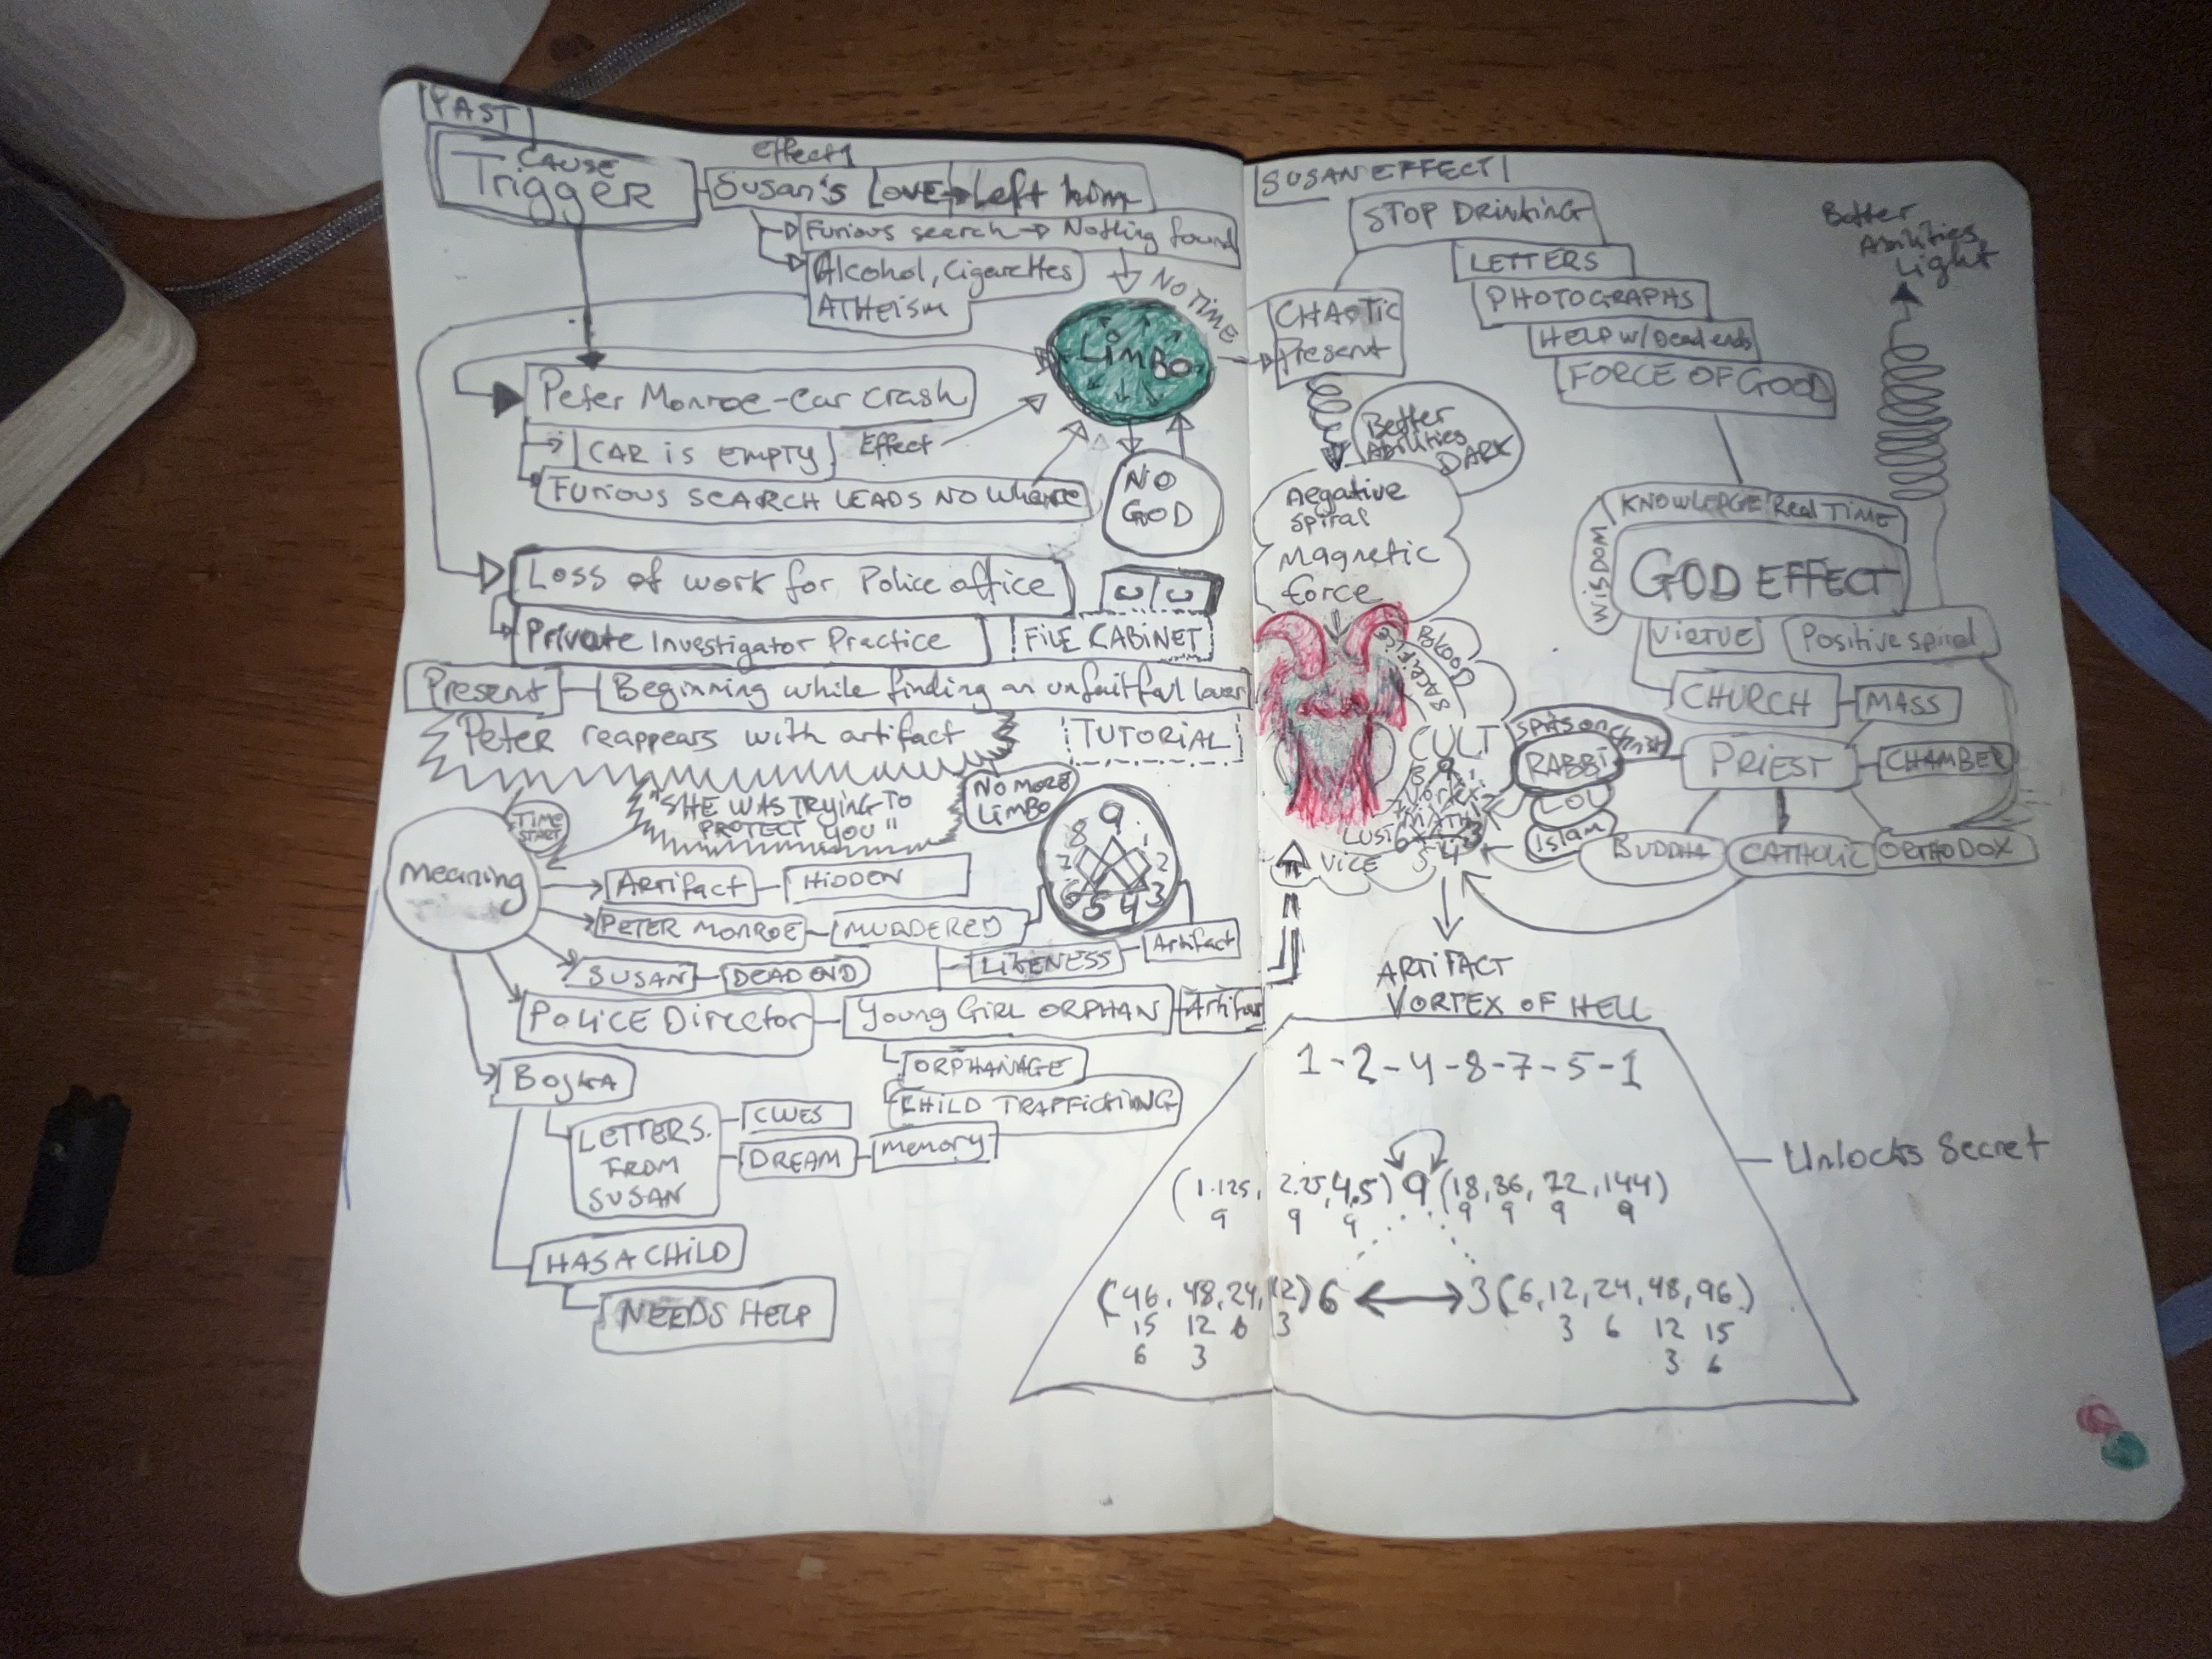 PAST
CAUSE
Trigger
Effect 1
Susan's Love Left him
Furious search Nothing found
Alcohol, Cigarettes
ATHEISM
NO TIME
LIMBO
Peter Monroe-Car crash
CAR IS EMPTY
Effect
FURIOUS SEARCH LEADS NO Where
NO
GOD
Loss of work for Police office
Private Investigator Practice
FILE CABINET
Present
Beginning while finding an unfaitful lover
Peter reappears with artifact
TUTORIAL
TIME
START
"SHE WAS TRYING TO
PROTECT YOU"
NO MORE
LIMBO
meaning
9
8 1
7 2
6 3
5 4
ARTIFACT
HIDDEN
PETER MONROE
MURDERED
LIKENESS
Artifact
SUSAN
DEAD END
POLICE Director
Young GIRL ORPHAN
ORPHANAGE
CHILD TRAFFICKING
BOJKA
LETTERS
FROM
SUSAN
CLUES
DREAM
memory
HAS A CHILD
NEEDS HELP
SUSAN EFFECT
STOP DRINKING
LETTERS
PHOTOGRAPHS
HELP W/Dead ends
FORCE OF GOOD
Better
Abilities
Light
CHAOTIC
Present
Better
Abilities
DARK
negative
spiral
magnetic
force
KNOWLEDGE
Real TIME
WISDOM
GOD EFFECT
VIRTUE
Positive spiral
CHURCH
MASS
PRIEST
CHAMBER
SACRIFICE
CULT
RABBI
Islam
BUDDHA
CATHOLIC
ORTHODOX
Vortex
MATH
LUST
VICE
ARTIFACT
VORTEX OF HELL
1-2-4-8-7-5-1
Unlocks Secret
(1.125, 2.25, 4.5) 9 (18, 36, 72, 144)
9 9 9 9 9 9 9
(96, 48, 24, 12) 6 3 (6, 12, 24, 48, 96)
15 12 6 3 3 6 12 15
6 3 3 6